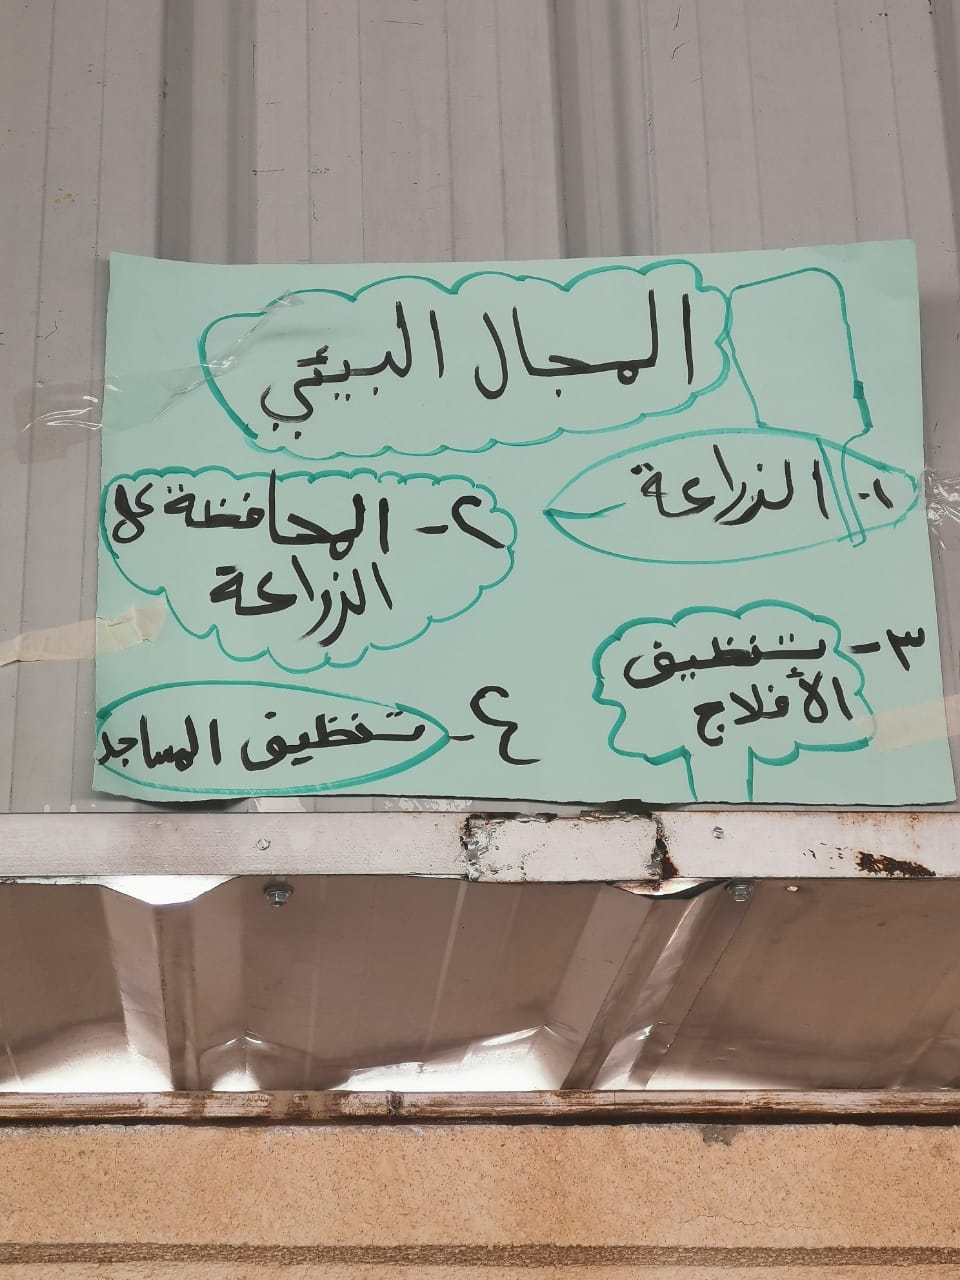 المجال البيئي
١- الزراعة
٢- المحافظة على
الزراعة
٣- تنظيف
الأفلاج
٤- تنظيف المساجد